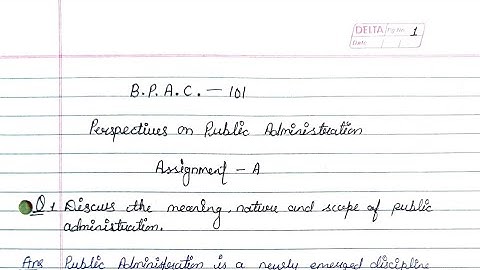 DELTA Pg No. 1
Date
B.P.A.C. — 101
Perspectives on Public Administration
Assignment - A
Q.1 Discuss the meaning, nature and scope of public
administration.
Ans Public Administration is a newly emerged discipline